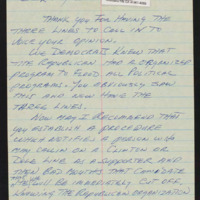 THANK YOU FOR HAVING THE
THREE LINES TO CALL IN TO
VOICE YOUR OPINION.
WE DEMOCRATS KNEW THAT
THE REPUBLICAN HAD A ORGANIZED
PROGRAM TO FLOOD ALL POLITICAL
PROGRAMS. YOU OBVIOUSLY SAW
THIS AND NOW HAVE THE
THREE LINES.
NOW MAY I RECOMMEND THAT
YOU ESTABLISH A PROCEDURE
A PERSON WHO
MAY CALL IN ON A CLINTON OR
DOLE LINE AS A SUPPORTER AND
THEN BAD MOUTHS THAT CANDIDATE
WILL BE IMMEDIATELY CUT OFF.
KNOWING THE REPUBLICAN ORGANIZATION